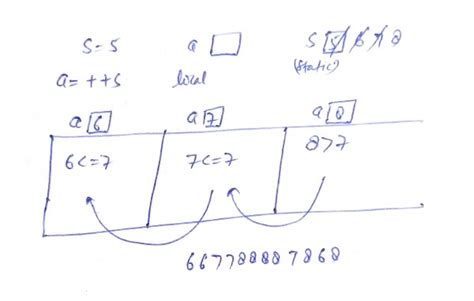 S = 5 a S 5 6 7 8
a = ++S local (static)
a 6 a 7 a 8
6 <= 7 7 <= 7 8 > 7
667788887868